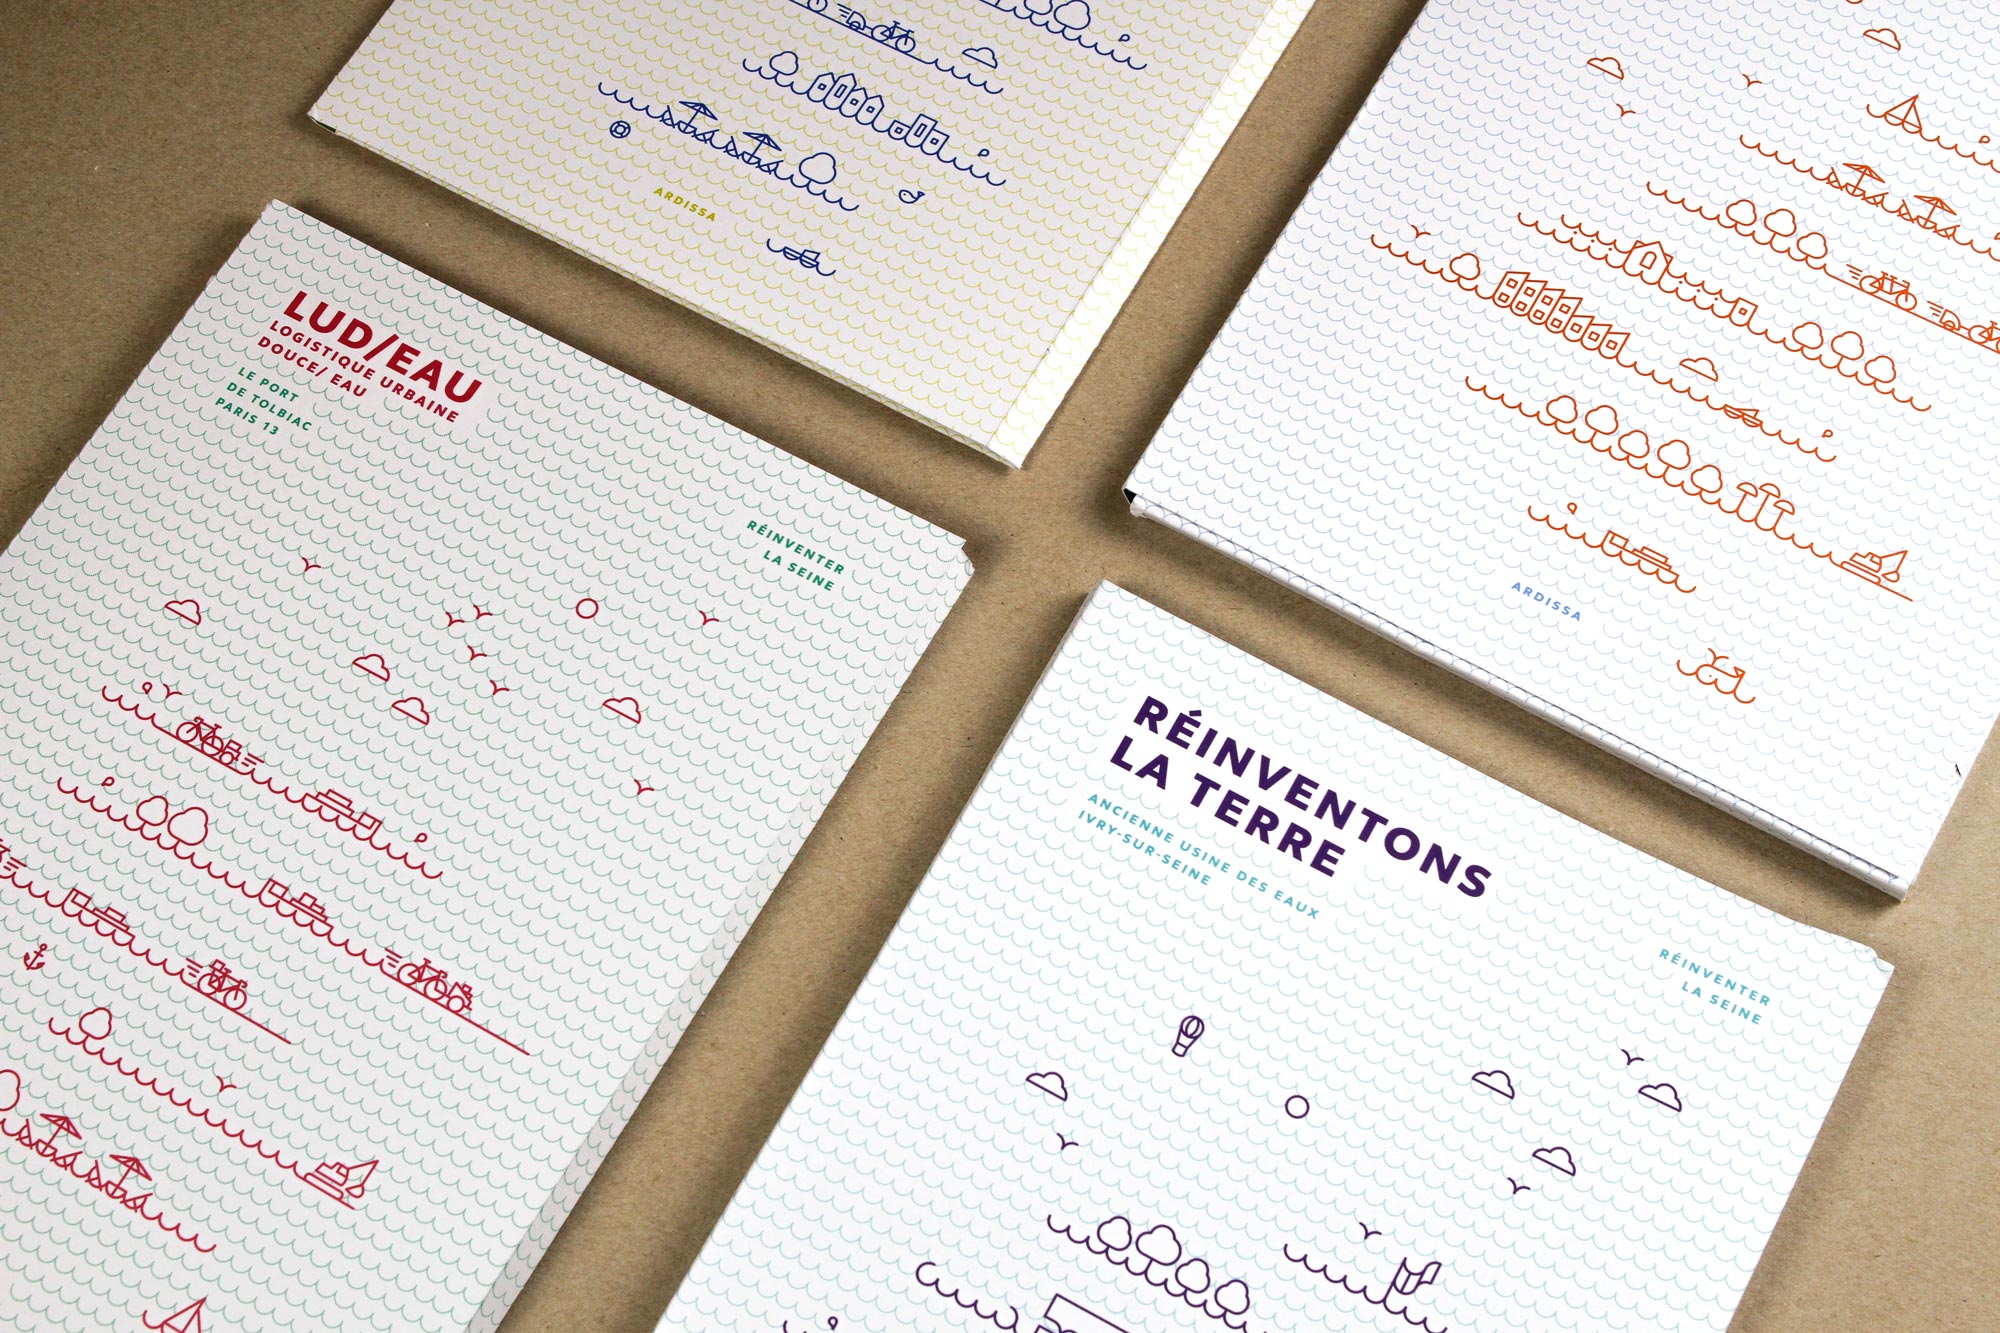 ARDISSA
LUD/EAU
LOGISTIQUE URBAINE
DOUCE/ EAU
LE PORT
DE TOLBIAC
PARIS 13
RÉINVENTER
LA SEINE
ARDISSA
RÉINVENTONS
LA TERRE
ANCIENNE USINE DES EAUX
IVRY-SUR-SEINE
RÉINVENTER
LA SEINE